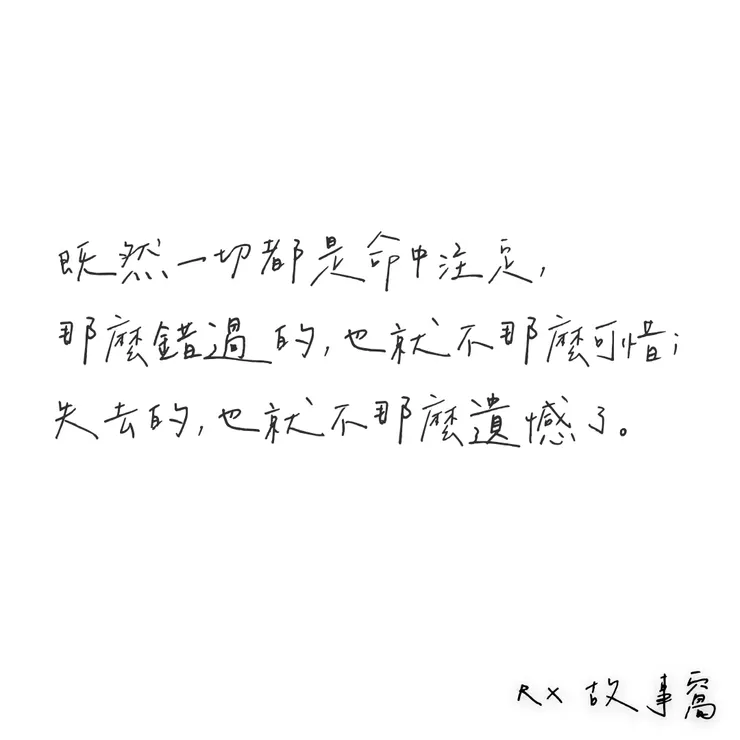 既然一切都是命中注定,
那麼錯過的,也就不那麼可惜;
失去的,也就不那麼遺憾了。
RX 故事窩